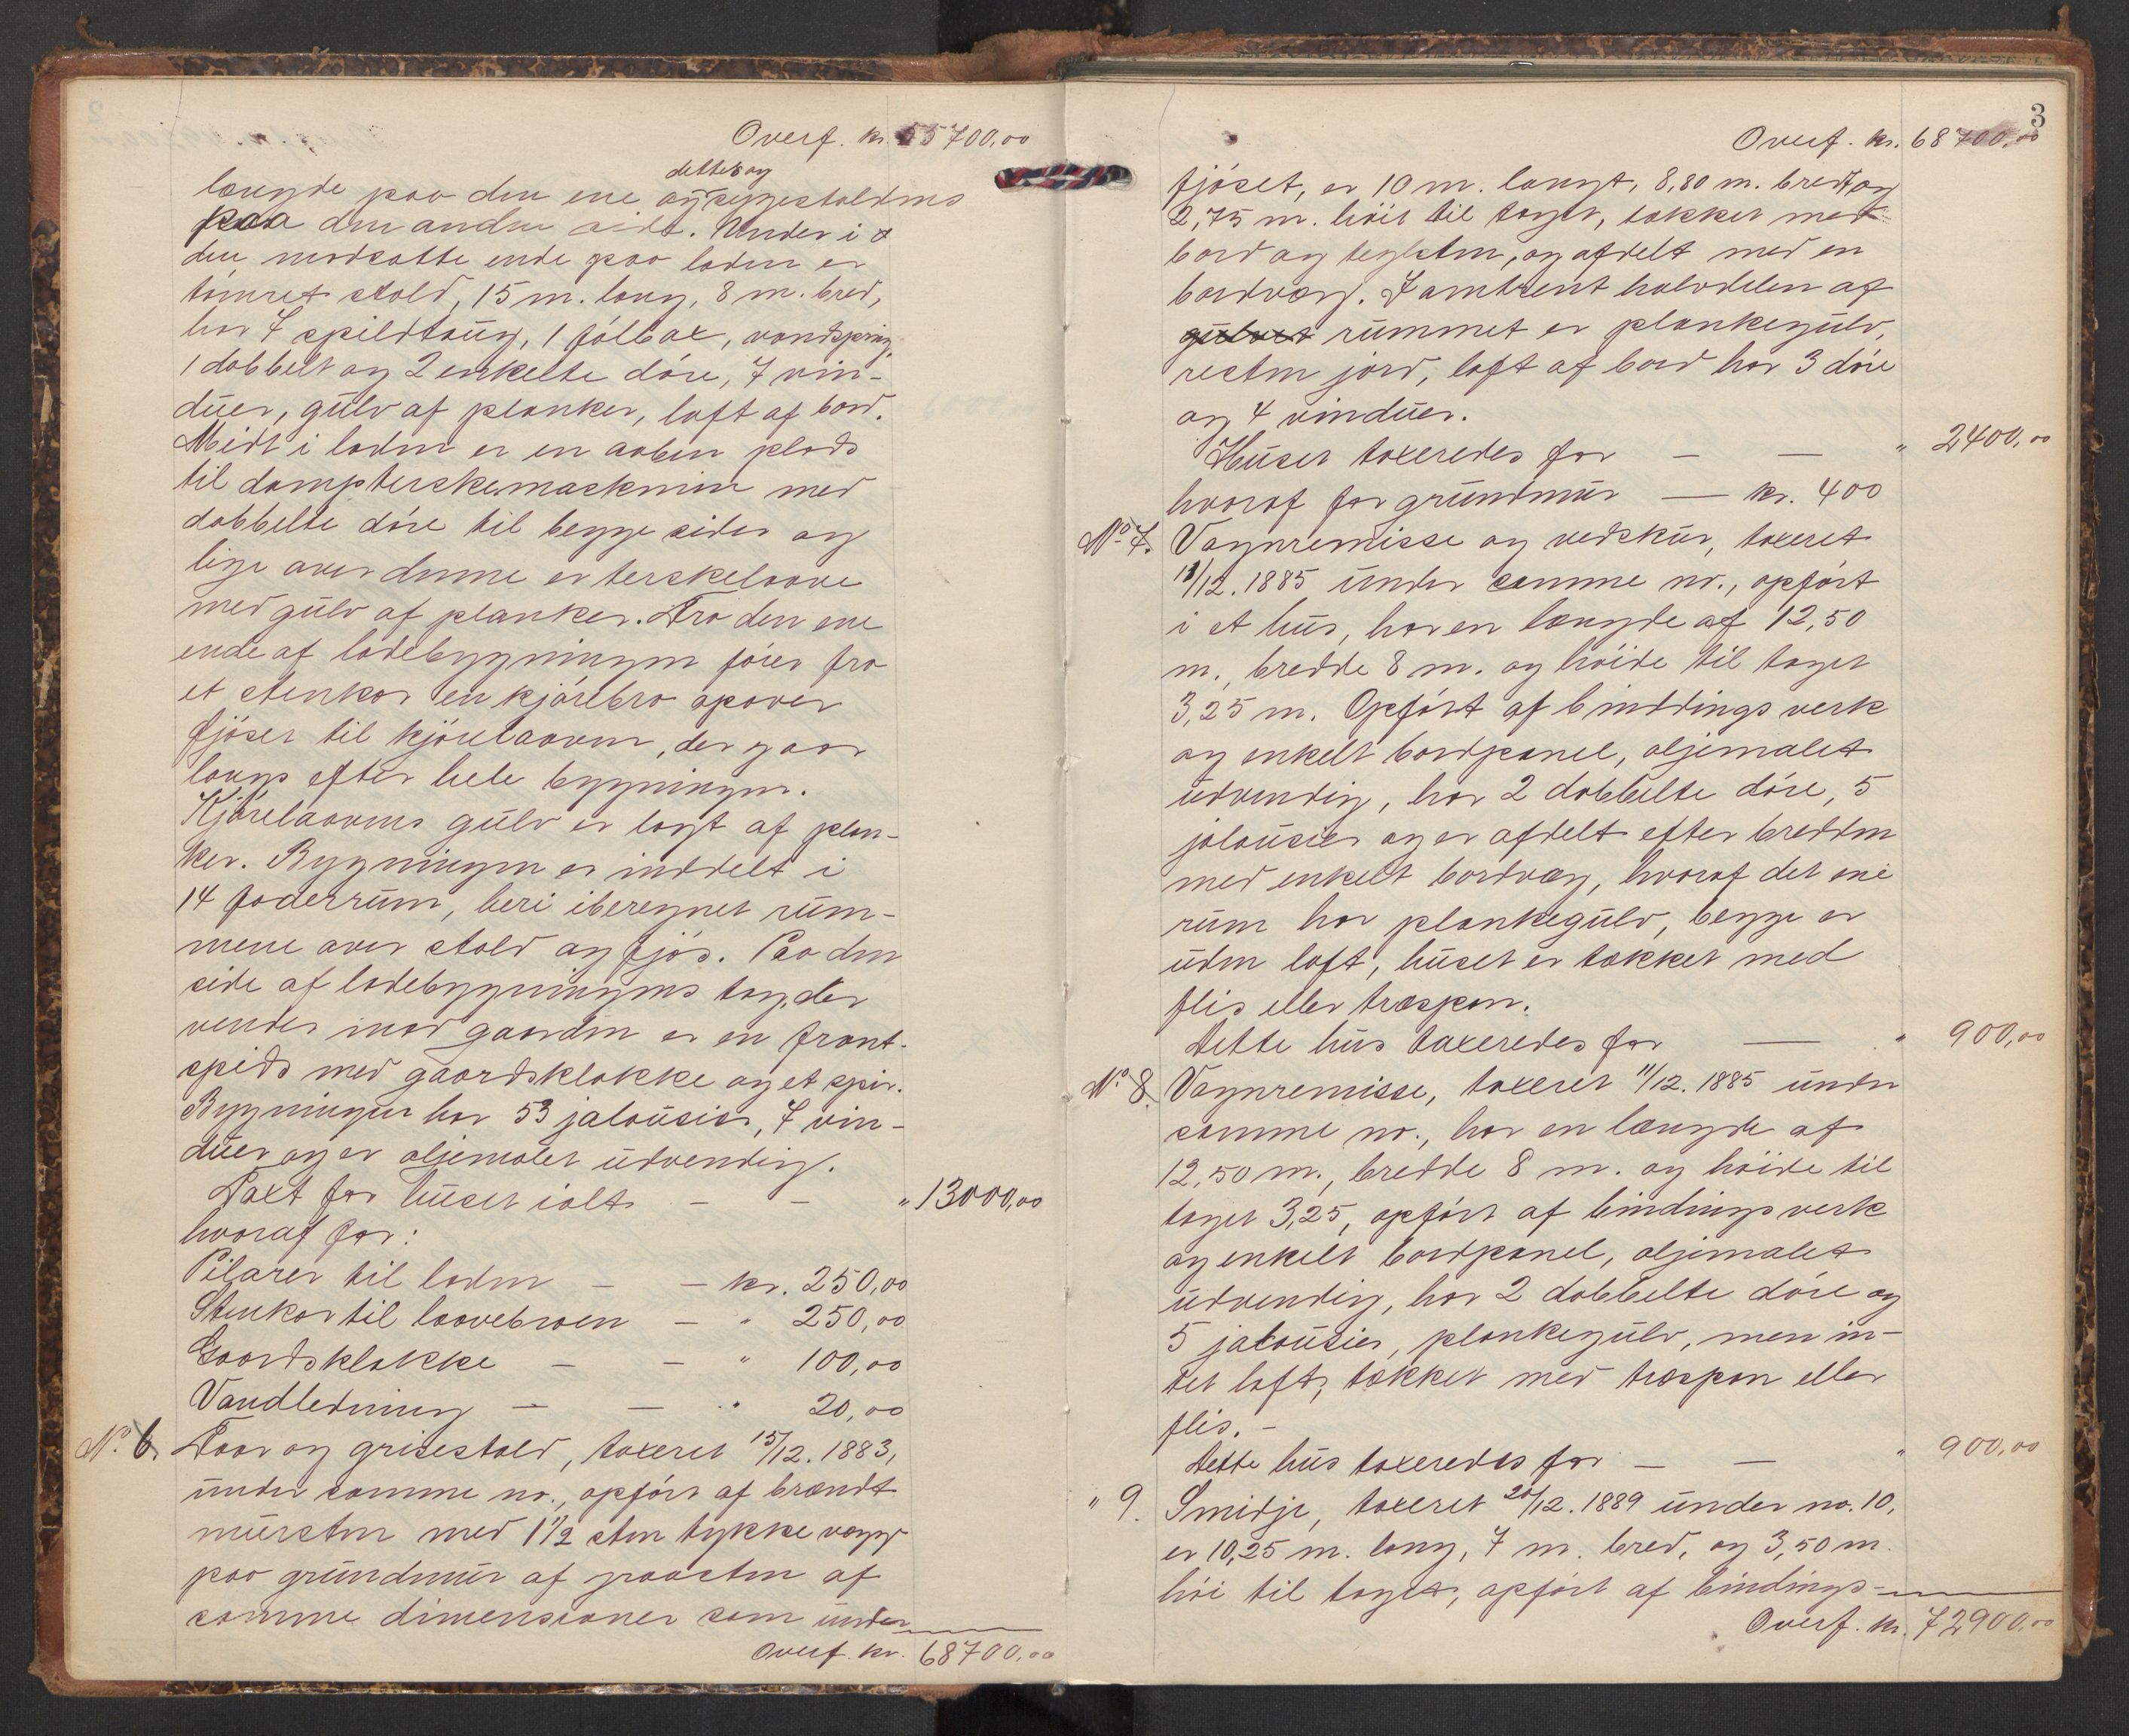 Overf. kr. 55700,00
dettes og
længde paa den ene og ryggestaldens
paa den anden side. Under i
den modsatte ende paa laden er
tømret stald, 15 m. lang, 8 m. bred,
har 7 spildtaug, 1 fölbox, vandspring,
1 dobbelt og 2 enkelte döre, 7 vin-
duer, gulv af planker, loft af bord.
Midt i laden er en aaben plads
til dampterskemaskinin med
dobbelte döre til begge sider og
lige over denne er terskelaave
med gulv af planker. Fra den ene
ende af ladebygningen förer fra
et stenkar en kjörebro opover
fjöset til kjörelaaven, der gaar
langs efter hele bygningen.
Kjörelaavens gulv er lagt af plan-
ker. Bygningen er inddelt i
14 foderrum, heri iberegnet rum-
mene over stald og fjös. Paa den
side af ladebygningens tag, der
vender mod gaarden er en front-
spids med gaardsklokke og et spir.
Bygningen har 53 jalousier, 7 vin-
duer og er oljemalet udvendig.
Taxt for huset ialt - - " 13000,00
hvoraf for:
Pilarer til laden - - kr. 250,00
Stenkar til laavebroen - " 250,00
Gaardsklokke - - " 100,00
Vandledning - - " 20,00
No. 6. Faar og grisestald, taxeret 15/12. 1883,
under samme no., opfört af brændt
mursten med 1 1/2 sten tykke vægge
paa grundmur af graasten af
samme dimensioner som under
Overf. kr. 68700,00
3
Overf. kr. 68700,00
fjöset, er 10 m. langt, 8,80 m. bredt og
2,75 m. höit til taget, takket med
bord og teglsten, og afdelt med en
bordvæg. I omtrent halvdelen af
gulvet rummet er plankegulv,
resten jord, loft af bord har 3 döre
og 4 vinduer.
Huset taxeredes for - - " 2400,00
hvoraf for grundmur - kr. 400
No. 7. Vognremisse og vedskur, taxeret
11/12. 1885 under samme no., opfört
i et hus, har en længde af 12,50
m., bredde 8 m. og höide til taget
3,25 m. Opfört af bindingsverk
og enkelt bordpanel, oljemalet
udvendig, har 2 dobbelte döre, 5
jalousier og er afdelt efter bredden
med enkelt bordvæg, hvoraf det ene
rum har plankegulv, begge er
uden loft, huset er takket med
flis eller træspon.
Dette hus taxeredes for - " 900,00
No. 8. Vognremisse, taxeret 11/12. 1885 under
samme no., har en længde af
12,50 m., bredde 8 m. og höide til
taget 3,25, opfört af bindingsverk
og enkelt bordpanel, oljemalet
udvendig, har 2 dobbelte döre og
5 jalousier, plankegulv, men in-
tet loft, takket med træspon eller
flis. -
Dette hus taxeredes for - - " 900,00
" 9. Smidje, taxeret 20/12. 1889 under no. 10,
er 10,25 m. lang, 7 m. bred, og 3,50 m.
höi til taget, opfört af bindings-
Overf. kr. 72900,00